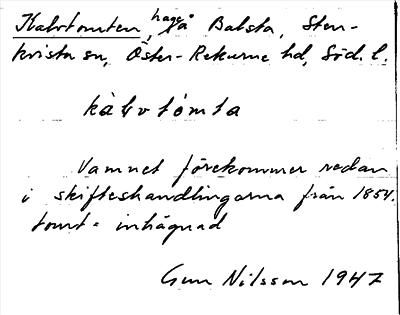 Kalvtomten, hage på Balsta, Sten-
kvista sn, Öster-Rekarne hd, Söd. l.
kàl̨vtómta
Namnet förekommer redan
i skifteshandlingarna från 1854.
tomt = inhägnad
Gun Nilsson 1947